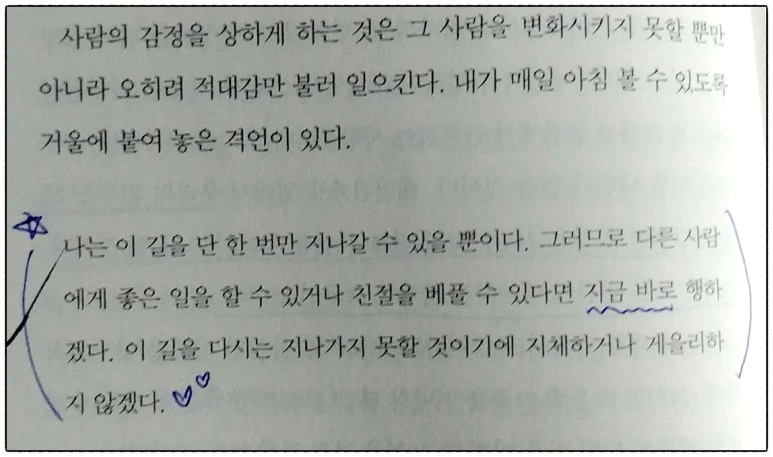 사람의 감정을 상하게 하는 것은 그 사람을 변화시키지 못할 뿐만
아니라 오히려 적대감만 불러 일으킨다. 내가 매일 아침 볼 수 있도록
거울에 붙여 놓은 격언이 있다.
나는 이 길을 단 한 번만 지나갈 수 있을 뿐이다. 그러므로 다른 사람
에게 좋은 일을 할 수 있거나 친절을 베풀 수 있다면 지금 바로 행하
겠다. 이 길을 다시는 지나가지 못할 것이기에 지체하거나 게을리하
지 않겠다.